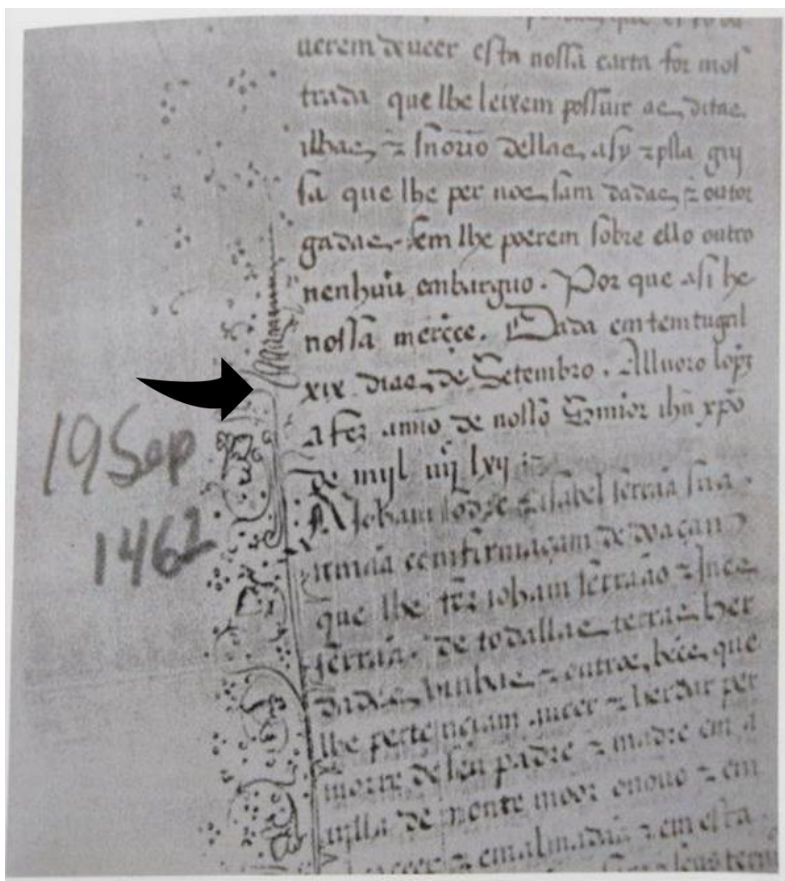 uerem de ueer esta nossa carta for mos
trada que lhe leixem possuir as ditas
ilhas z senorio dellas, asy z pella guy
sa que lhe per nos sam dadas z outor
gadas, sem lhe poerem sobre ello outro
nenhuũ embarguo. Por que asi he
nossa mercee. Dada em tentugal
xix dias de Setembro. Alluoro lopz
a fez anno de nosso Senhor ihũ xpõ
de myl iiij lxij
19 Sep
1462
Joham e Isabel ferrãa sua
irmãa comfirmaçam de doaçam
que lhe fez Joham z Ines
ferrãa. de todallas terras her
dades, vinhas z outros bẽes que
lhe perteneciam auer z herdar per
morte de seu padre z madre em a
uylla de monte moor o nouo z em
z em almadãa z em esta